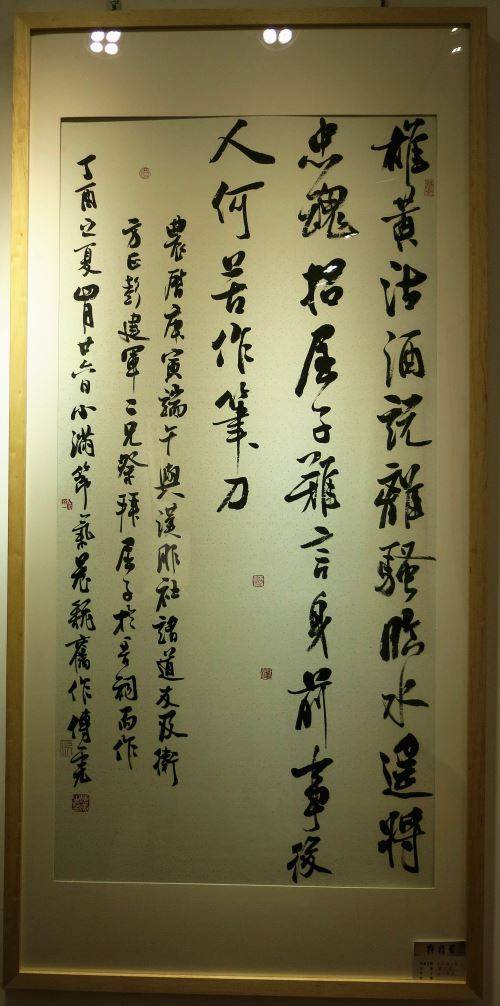 雄黄沽酒説離騷臨水遥將
忠魂招屈子難言身前事後
人何苦作筆刀
農曆庚寅端午與漢服社諸道友及衛
方正彭建軍二兄祭拜屈子於
祠而作
丁酉之夏四月廿六日小滿節
舊作傳